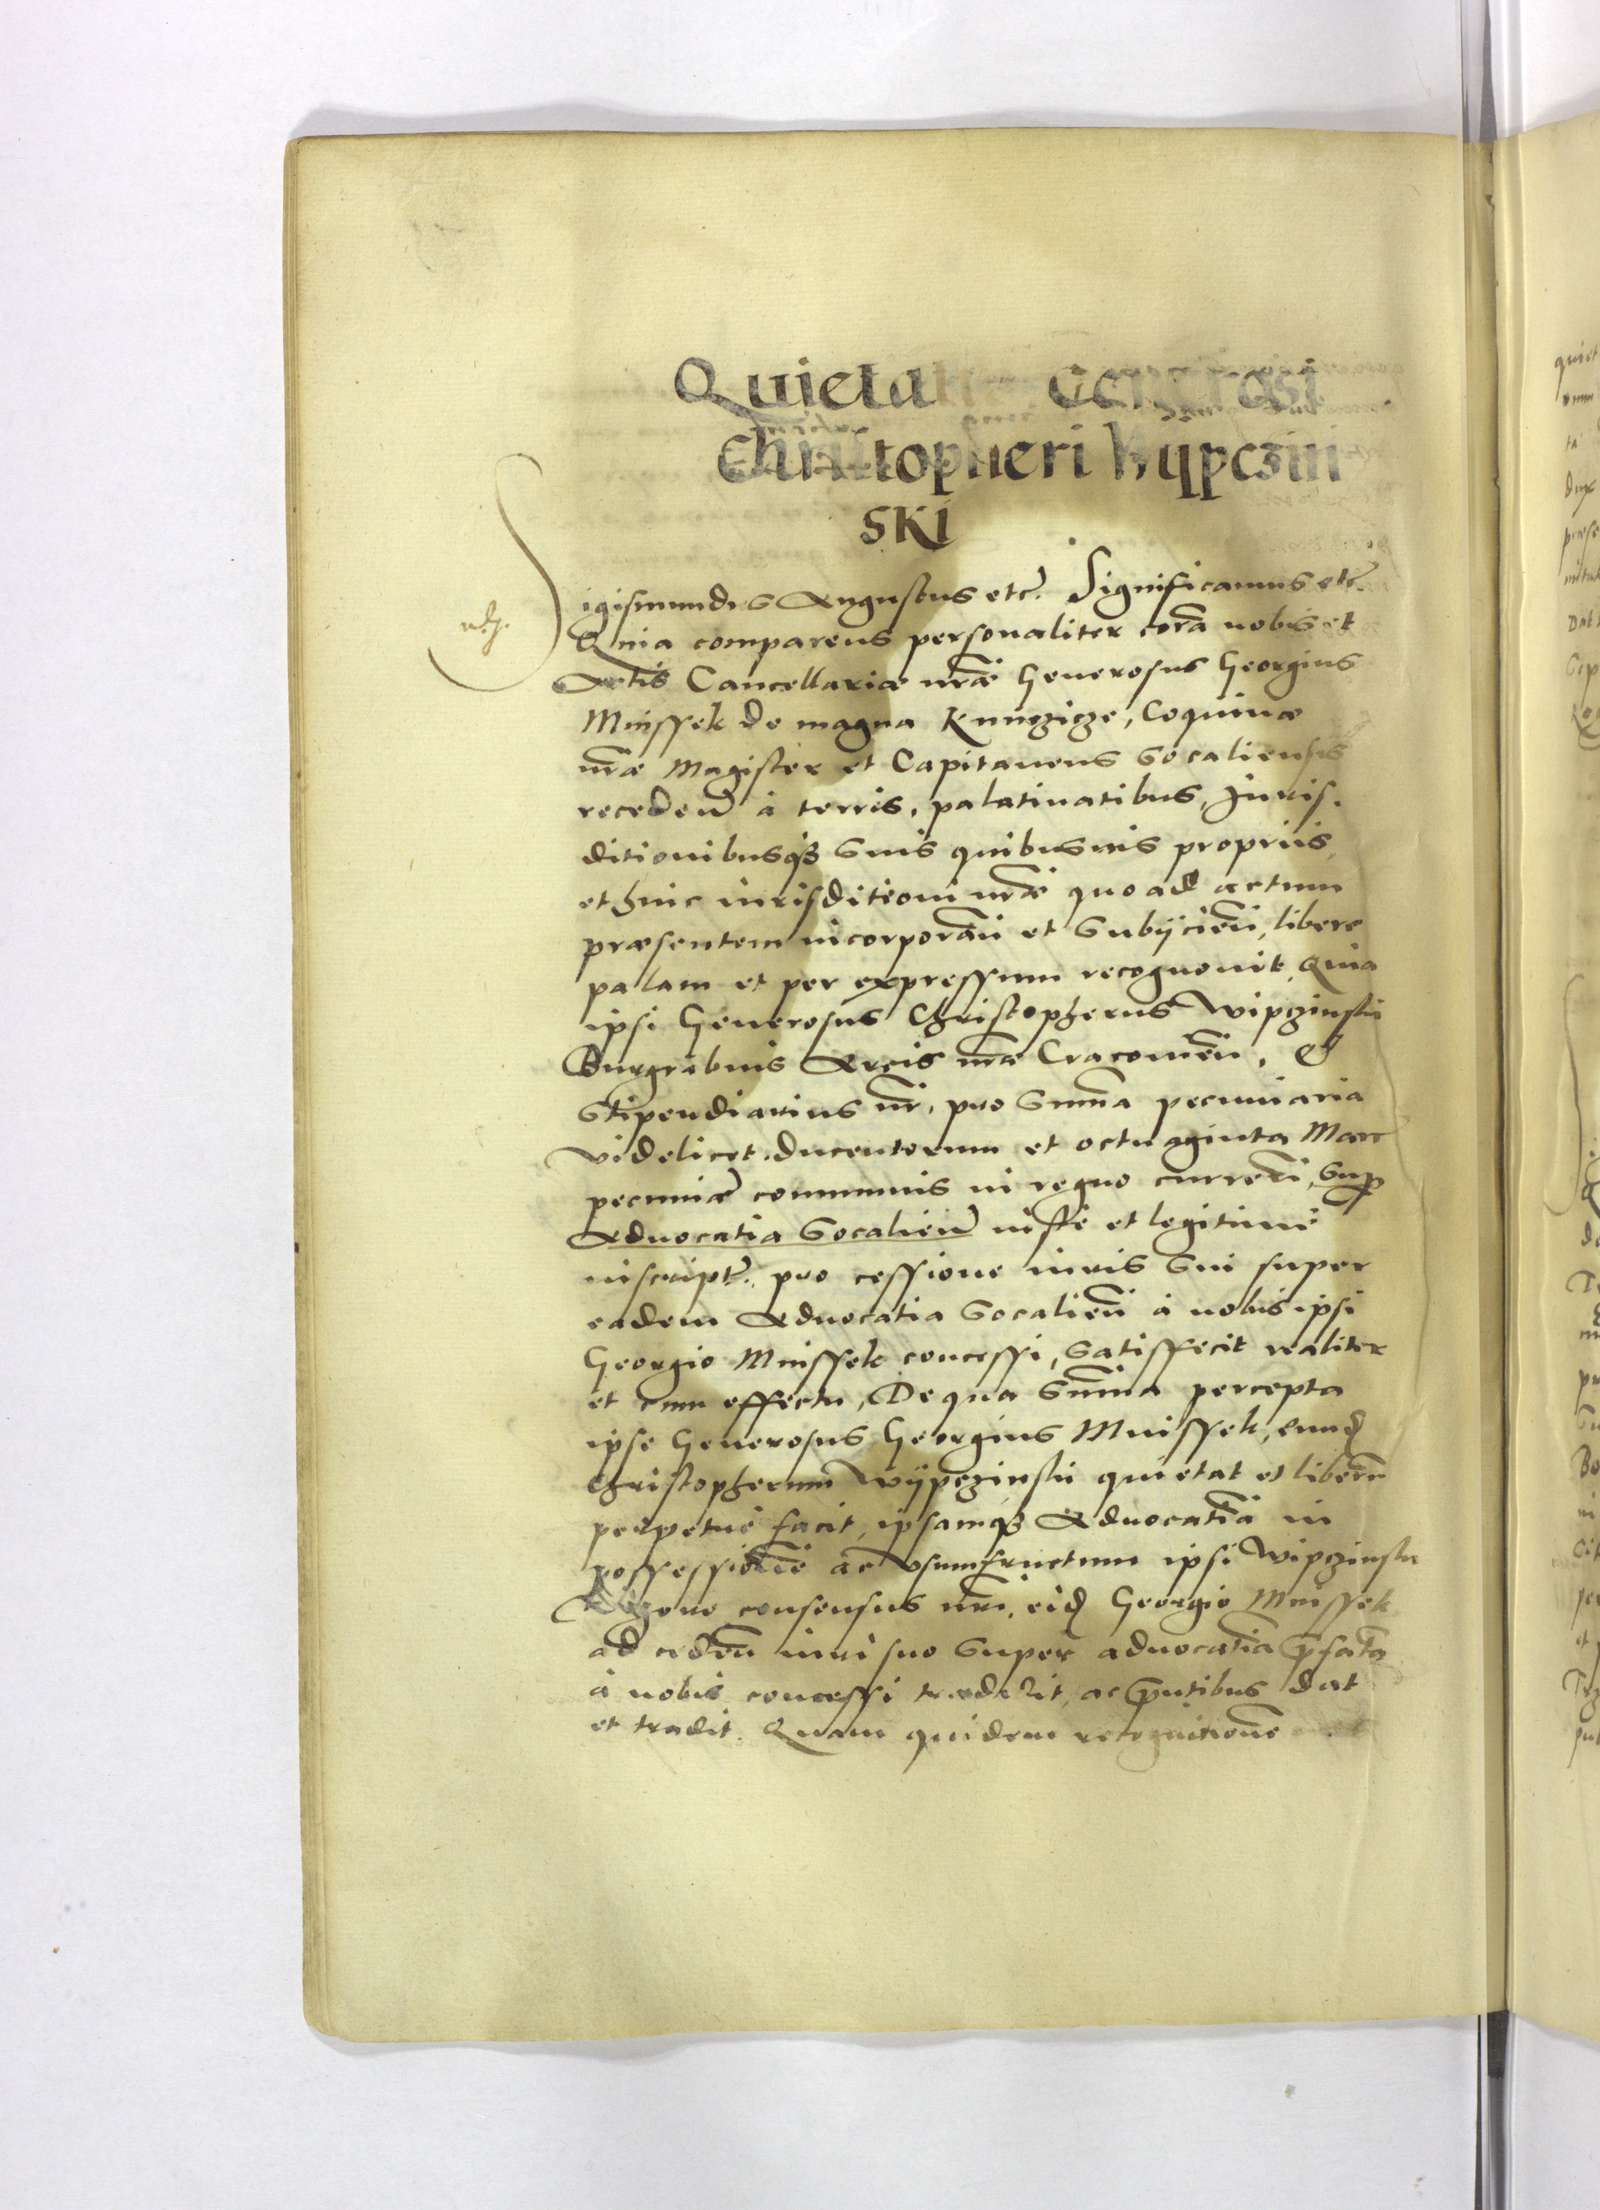 Quietatio Generosi
Christopheri Wypczin
ski
Sigismundus Augustus etc. Significamus etc.
Quia comparens personaliter corā nobis et
Actis Cancellariæ nr̄æ Generosus Georgius
Mnissek de magna Kunczicze, Coquinæ
nr̄æ Magister et Capitaneus Socaliensis
receden̄ à terris, palatinatibus, Juris,
ditionibusqȝ suis quibusuis propriis,
et huic iurisditioni nr̄æ quo ad actum
præsentem incorporan̄ et subijcien̄, libere
palam et per expressum recognouit, Quia
ipsi Generosus Christopherus Wipczinski
Burgrabius Arcis nr̄æ Cracouien̄, &
stipendiarius nr̄, pro sum̄a pecuniaria
videlicet ducentorum et octuaginta Marc
pecuniæ communis in regno curren̄, sup
Aduocatia Socalien̄ iuste et legitime
inscript., pro cessione iuris sui super
eadem Aduocatia Socalien̄ à nobis ipsi
Georgio Mnissek concessi, satisfecit realiter
et cum effectu, De qua sum̄a percepta
ipse Generosus Georgius Mnissek, eund
Christopherum Wijpczinski quietat et liberū
perpetuè facit, ipsamqȝ Aduocatiā in
possessionē ac vsumfructum ipsi Wipczinski
Vigore consensus nr̄i, eid Georgio Mnissek
ad ceden̄ iuri suo super aduocatia p̄fata
à nobis concessi tradidit, ac p̄ntibus dat
et tradit. Quam quidem recognitionē